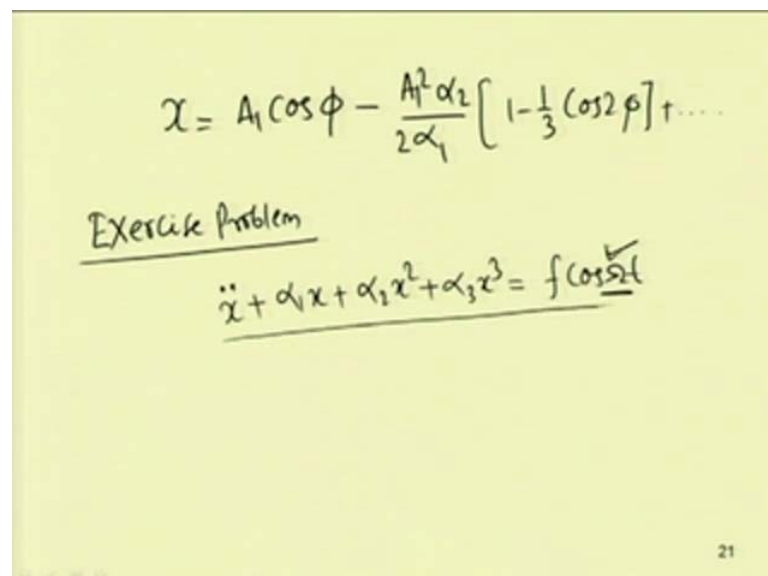 x = A₁ cos φ − A₁² α₂ / 2α₁ [ 1 − 1/3 Cos2φ ] + ....
Exercise Problem
ẍ + α₁x + α₂x² + α₃x³ = f cos Ωt
21